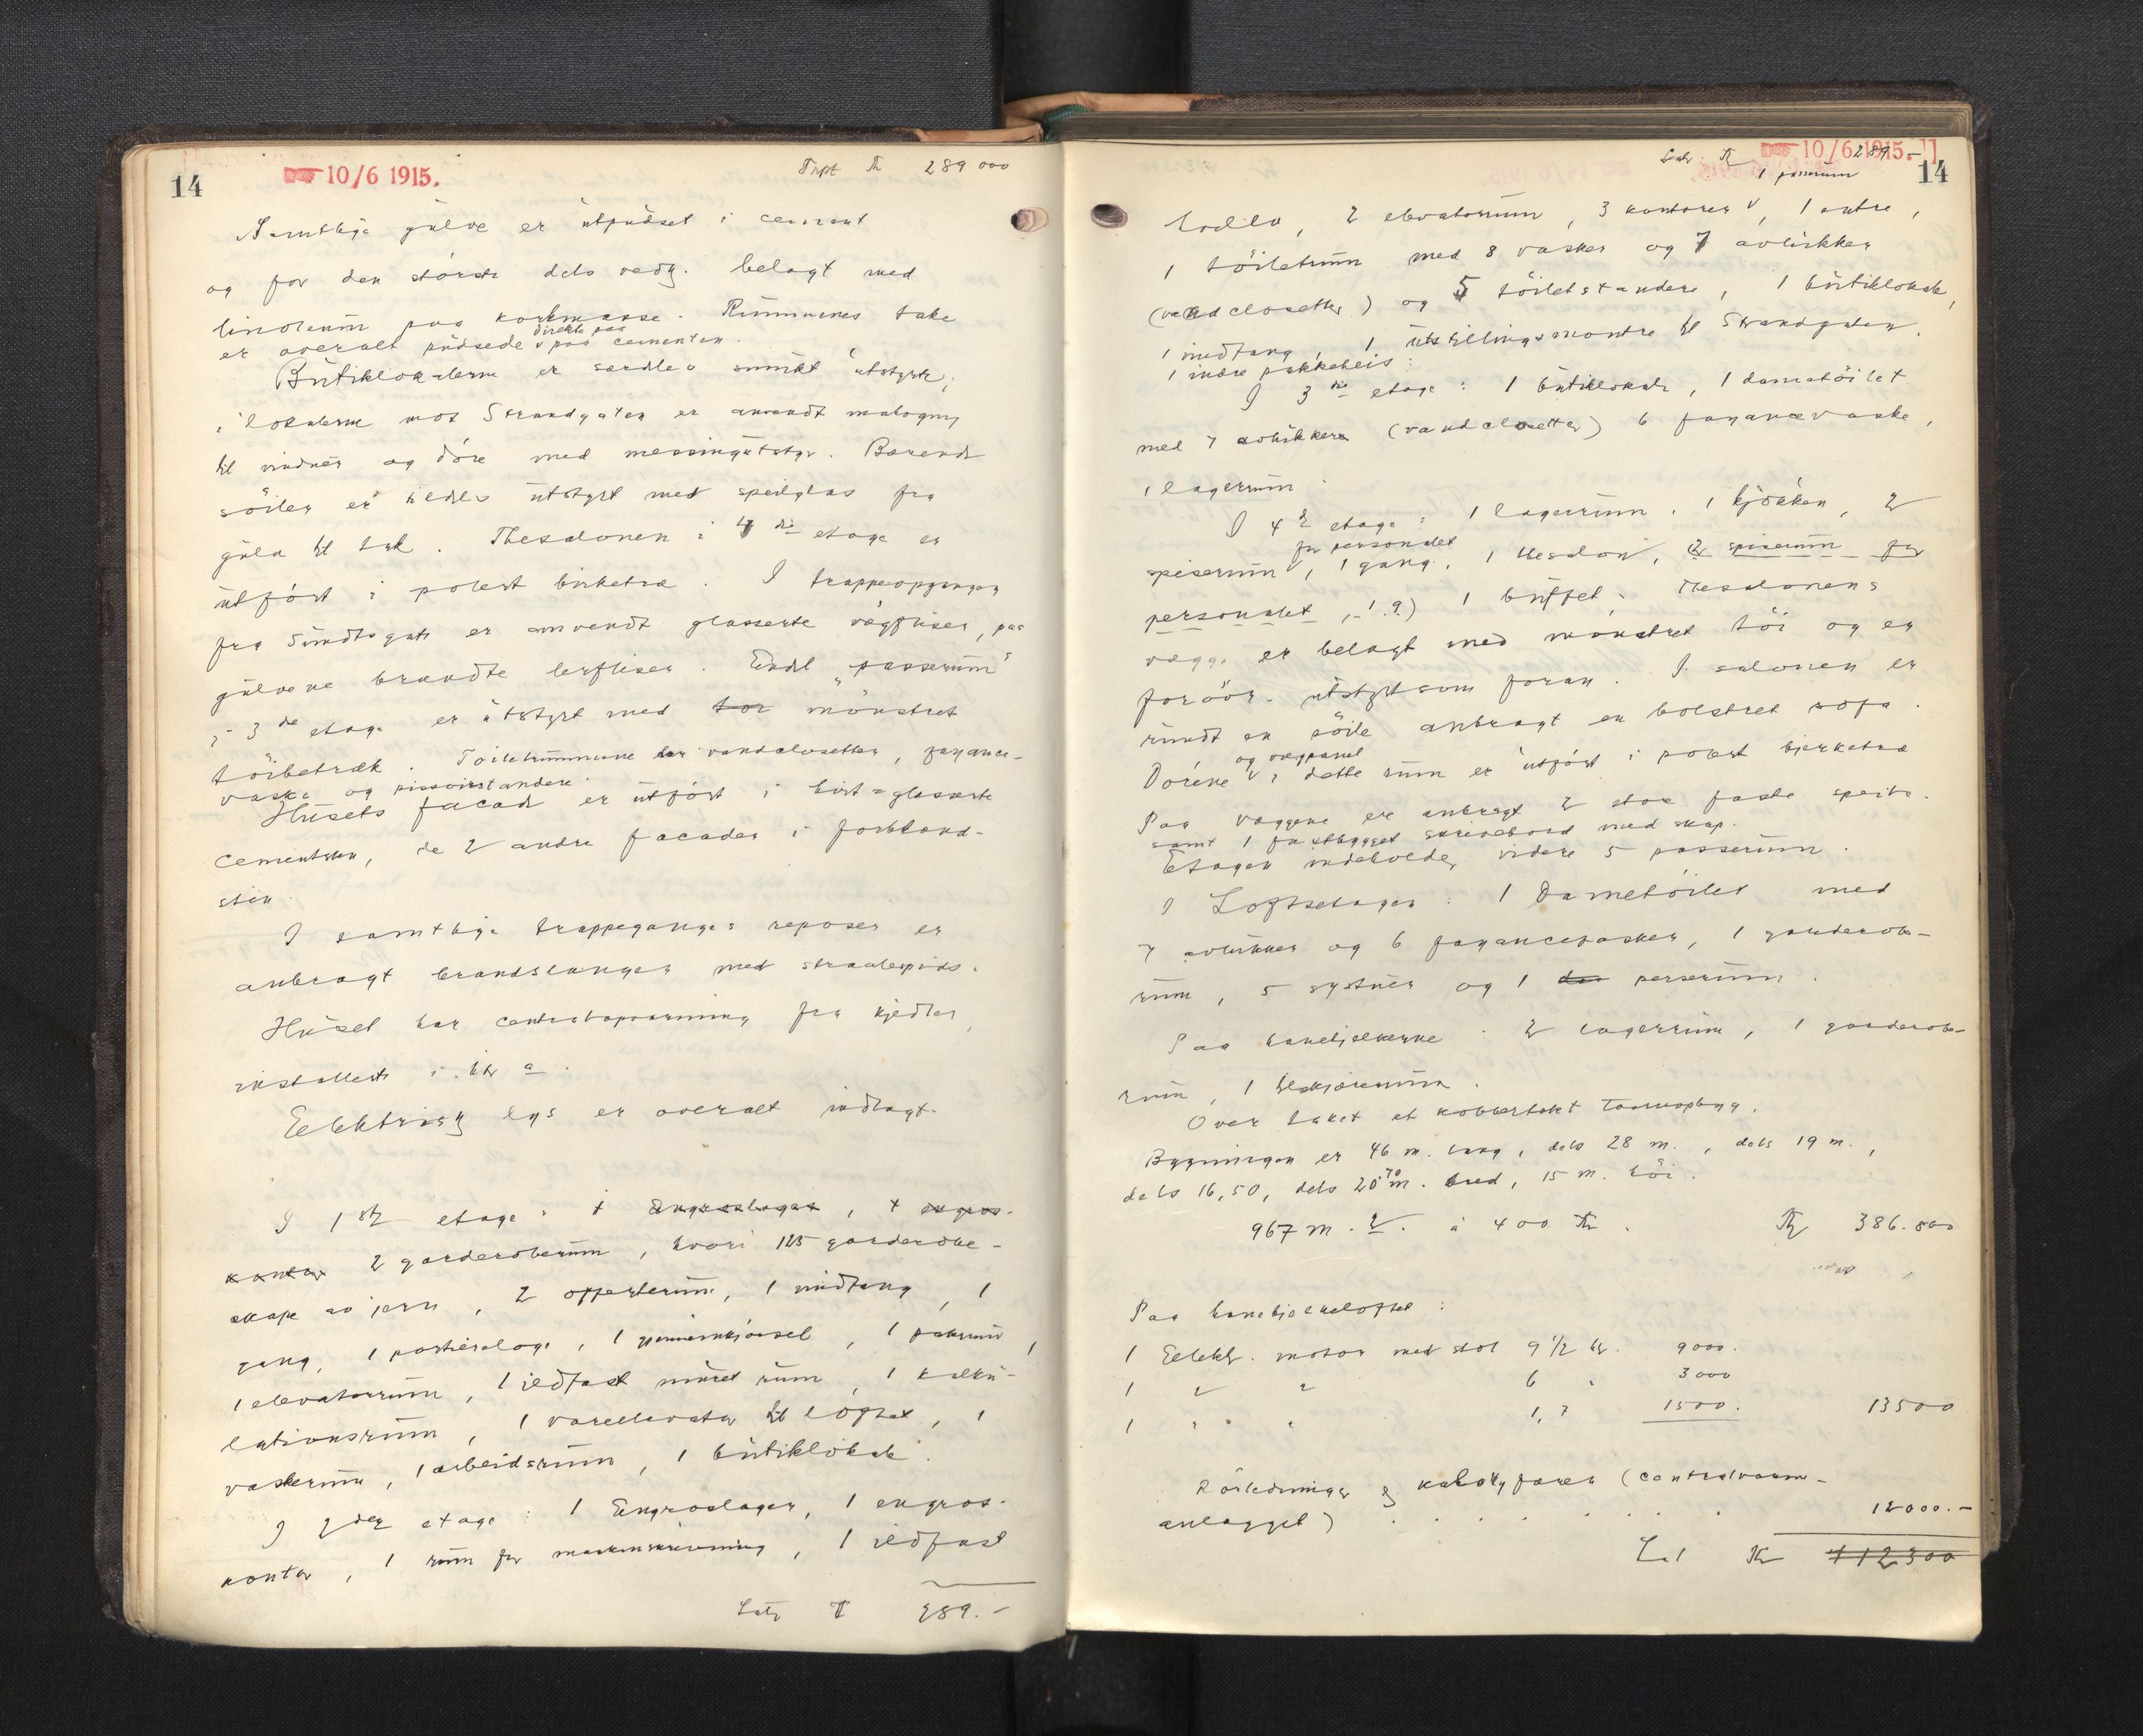 14
10/6 1915.
Trpt Kr 289 000
Samtlige gulve er utpudset i cement
og for den største dels vedk. belagt med
linoleum paa korkmasse. Rummenes take
er overalt pudsede direkte paa cementen.
Butiklokalerne er særdeles smukt utstyrt;
i lokalerne mot Strandgaten er anvendt mahogny
til vinduer og døre med messingutstyr. Bærende
søiler er tildels utstyrt med speilglas fra
gulv til tak. Thesalonen i 4 de etage er
utført i polert birketræ. I trappeopgangen
fra Sundtsgate er anvendt glasserte vægfliser, paa
gulvene brændte lerfliser. Endel "passerum"
i 3 de etage er utstyrt med tør mønstret
tøibetræk. Toiletrummene har vandclosetter, fayance-
vaske og pissoirstandere.
Husets facade er utført i hvit-glasserte
cementsten, de 2 andre facader i forblænd-
sten.
I samtlige trappeganges reposer er
anbragt brandslanger med straalespids.
Huset har centralopvarming fra kjedler,
installerte i litr a.
Eelektrisk lys er overalt indlagt.
I 1 ste etage: 1 Engroslager, 1 engros-
kontor 2 garderoberum, hvori 125 garderobe-
skape av jern, 2 opperterum, 1 vindfang, 1
gang, 1 portierloge, 1 gjennemkjørsel, 1 pakrum,
1 elevatorrum, 1 ildfast muret rum, 1 kalku-
lationsrum, 1 vareelevator til loftet, 1
vaskerum, 1 arbeidsrum, 1 butiklokale.
I 2 den etage: 1 Engroslager, 1 engros-
kontor, 1 rum for maskinskrivning, 1 ildfast
Latr Kr 289.-
10/6 1915.
14
Latr. Kr 289 -
1 passerum
hvælv, 2 elevatorrum, 3 kontorer, 1 entre,
1 toiletrum med 8 vasker og 7 avlukker
(vandclosetter) og 5 toiletstandere, 1 butiklokale,
1 vindfang, 1 utstillingsmontre til Strandgaten.
1 indre pakkeheis.
I 3 die etage: 1 butiklokale, 1 dametoilet
med 7 avlukker (vandclosetter) 6 fayancevaske,
1 lagerrum.
I 4 de etage: 1 lagerrum, 1 kjøkken, 2
spiserum for personalet, 1 gang, 1 thesalon, (2 spiserum for
personalet, 1. 9.) 1 buffet. Thesalonens
vægge er belagt med mønstret tøi og er
forøvr. utstyrt som foran. I salonen er
rundt en søile anbragt en bolstret sofa.
Dørene og vægpanel i dette rum er utført i polert bjerketræ
Paa væggene er anbragt 2 store faste speile.
samt 1 fastbygget skrivebord med skap.
Etagen indeholder videre 5 passerum.
I Loftsetagen: 1 Dametoilet med
7 avlukker og 6 fayancevasker, 1 garderobe-
rum, 5 systuer og 1 perserum.
Paa hanebjelkerne: 2 lagerrum, 1 garderobe-
rum, 1 tilskjærerrum.
Over taket et kobbertækt Taarnopbyg.
Bygningen er 46 m. lang, dels 28 m., dels 19 m.,
dels 16,50, dels 20.70 m. bred, 15 m. høi.
967 m. 2. à 400 Kr. Kr 386.800
Paa hanebjelkeloftet:
1 Eelektr. motor med stol 9 1/2 hk. 9000.
1 " " 6 " 3000
1 " " 1,7 1500. 13500
Rørledninger & kaloriferer (centralvarme-
anlægget) . . . . . . 12000.-
Lat Kr 412300